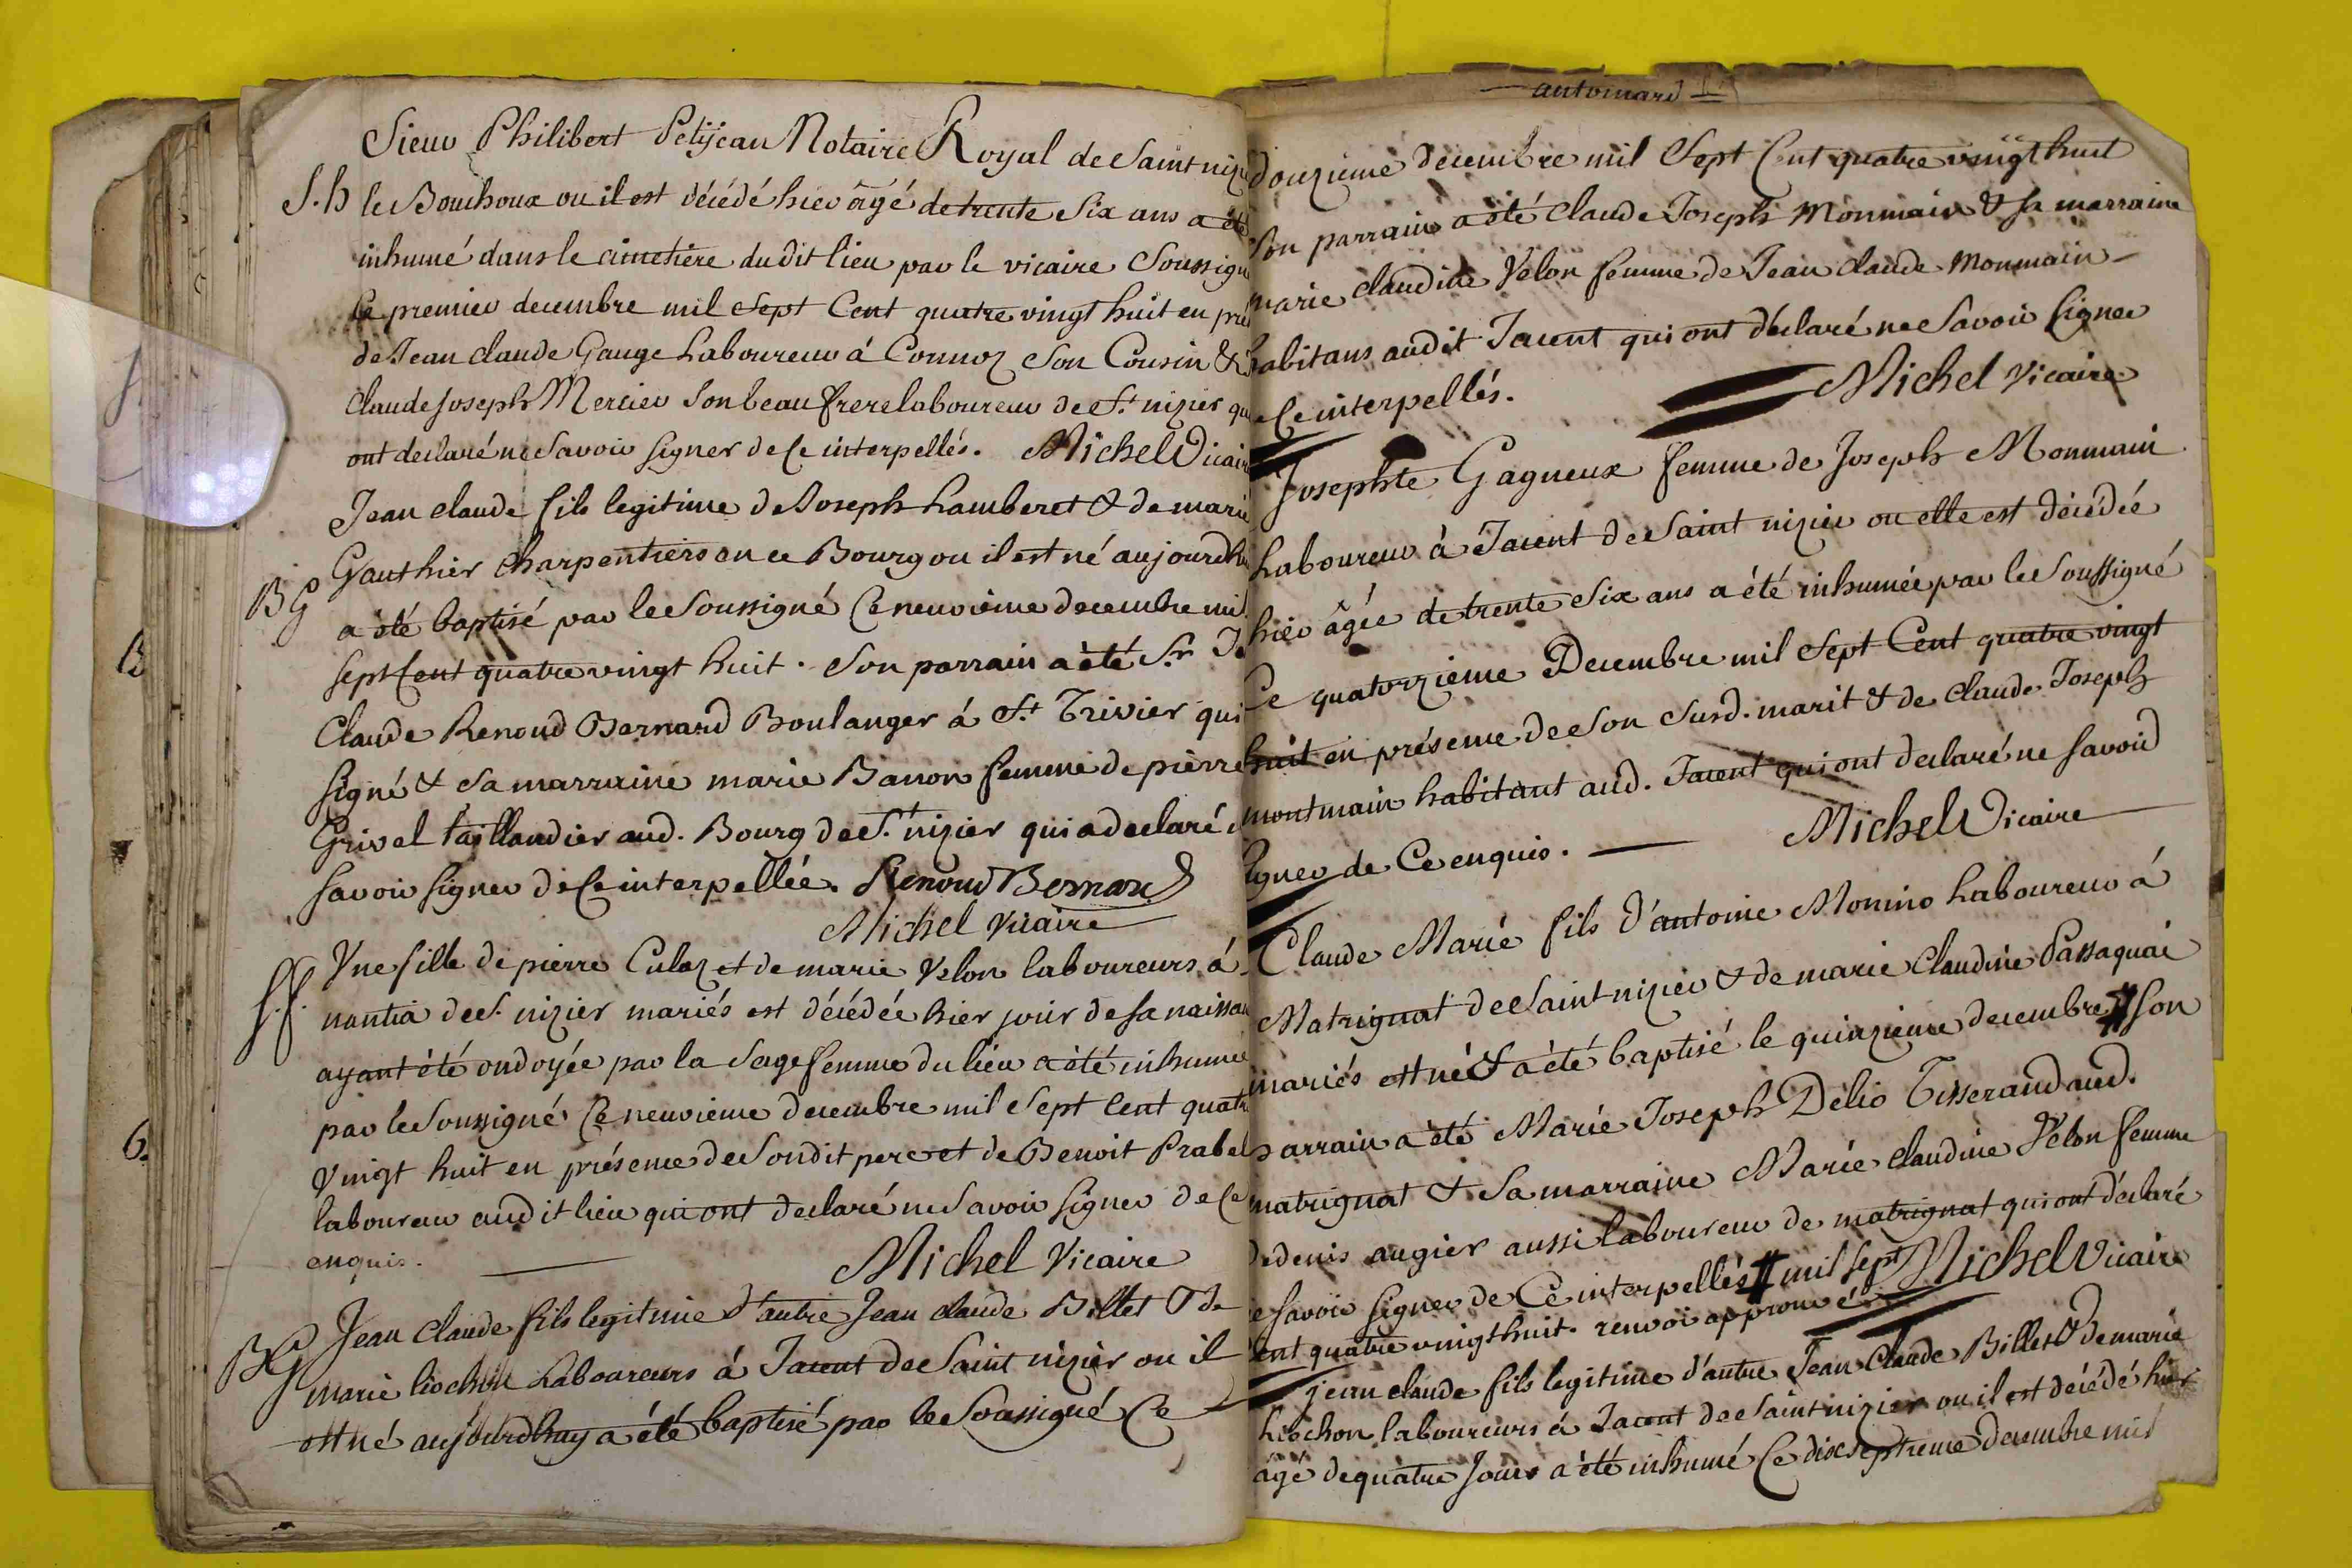 Sieur Philibert Petijean Notaire Royal de Saint nizi
S. h
le Bouchoux ou il est décédé hier âgé de trente Six ans a été
inhumé dans le cimetiere dudit lieu par le vicaire Soussign
Ce premier decembre mil Sept Cent quatre vingt huit en pré
de Jean claude Gauge Laboureur à Cormoz Son Cousin &
Claude Joseph Mercier Son beau frere laboureur de St nizier qu
ont declaré ne Savoir Signer de Ce interpellés. Michel Vicair
Jean claude fils legitime de Joseph Lamberet & de marie
BG
Gauthier charpentiers en ce Bourg ou il est né aujourdhu
a été baptisé par le Soussigné Ce neuvième decembre mil
B
sept Cent quatre vingt huit. Son parrain a été Sr J
Claude Renoud Bernard Boulanger à St Trivier qui
Signé & Sa marraine marie Banon femme de pierre
Grivel taillandier aud. Bourg de St nizier qui a declaré
Savoir Signer de Ce interpellée. Renoud Bernard
Michel Vicaire
Une fille de pierre Culaz et de marie Velon laboureurs à
S.f.
nantia de S. nizier mariés est décédée hier jour de sa naissan
ayant été ondoyée par la Sage femme du lieu a été inhumée
par le Soussigné Ce neuvieme decembre mil Sept Cent quatr
6.
vingt huit en présence de Son dit pere et de Benoit Prabel
laboureur audit lieu qui ont declaré ne Savoir Signer de Ce
enquis.
Michel Vicaire
BG
Jean Claude fils legitime d'autre Jean claude Billet & de
marie liochon Laboureurs à Tacent de Saint nizier ou il
est né aujourdhuy a été baptisé par le Soussigné Ce
antoinard
douzieme decembre mil Sept Cent quatre vingt huit
Son parrain a été Claude Joseph Monmain & sa marraine
marie claudine Velon femme de Jean claude Monmain
habitans audit Tacent qui ont déclaré ne Savoir Signer
de Ce interpellés. Michel Vicaire
Josephte Gagneux femme de Joseph Monmain
Laboureur à Tacent de Saint nizier ou elle est décédée
hier âgée de trente Six ans a été inhumée par le Soussigné
Ce quatorzieme Decembre mil Sept Cent quatre vingt
huit en présence de Son Susd. marit & de claude Joseph
montmain habitant aud. Tacent qui ont declaré ne Savoir
Signer de Ce enquis. Michel Vicaire
Claude Marie fils d'antoine Monino Laboureur à
Matrignat de Saint nizier & de marie Claudine Passaquai
mariés est né & a été baptisé le quinzieme decembre # Son
parrain a été Marie Joseph Délio Tisserand aud.
matrignat & Sa marraine Marie claudine Velon femme
de denis augier aussi laboureur de matrignat qui ont déclaré
ne Savoir Signer de Ce interpellés # mil Sept Michel Vicaire
Cent quatre vingt huit. renvoi approuvé
jean claude fils legitime d'autre Jean Claude Billet & de marie
Liochon laboureurs à Tacent de Saint nizier ou il est décédé hier
agé de quatre Jours a été inhumé Ce dixseptieme decembre mil